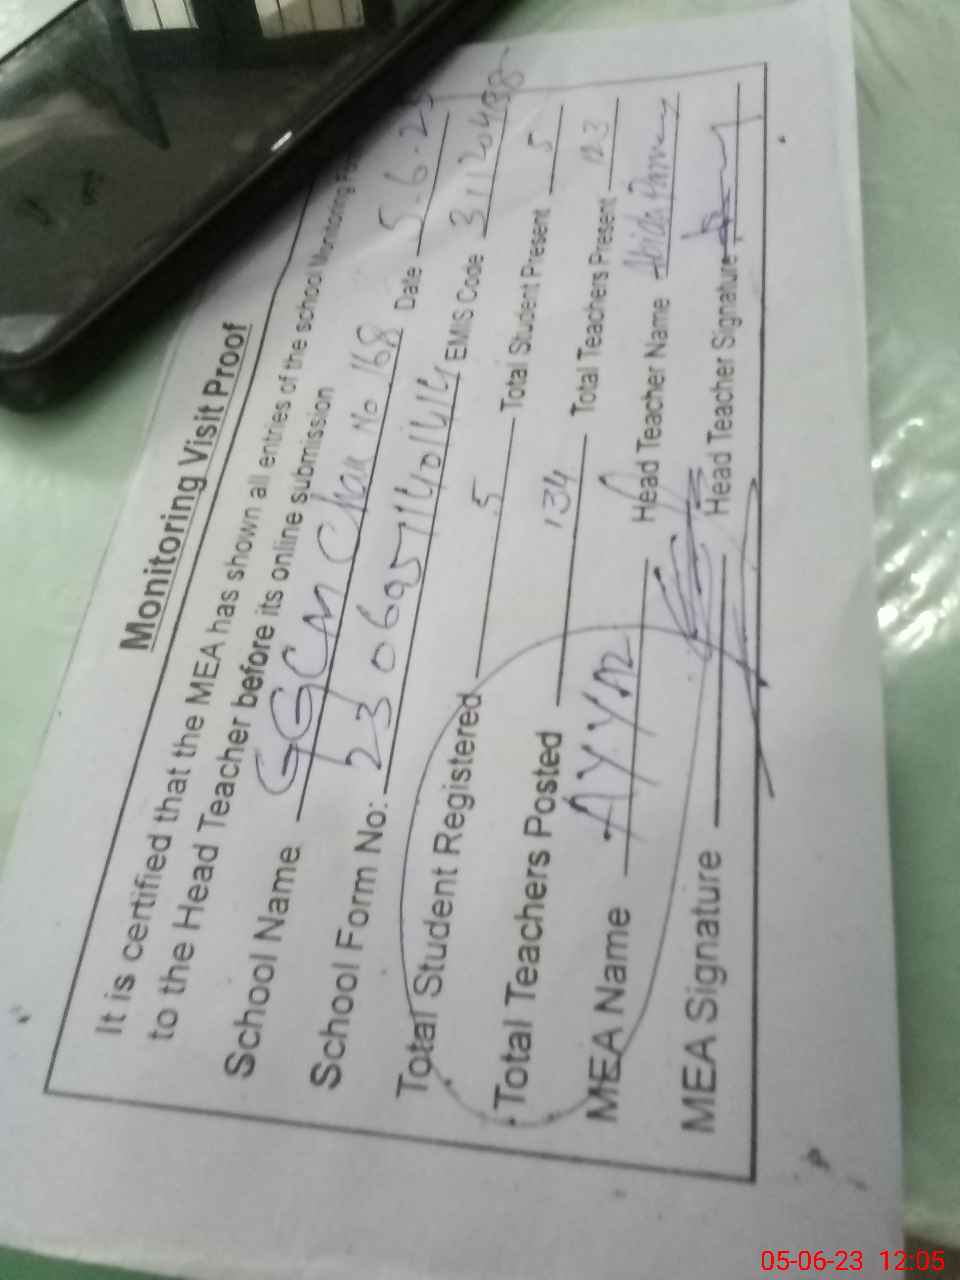 Monitoring Visit Proof
It is certified that the MEA has shown all entries of the school Monitoring
to the Head Teacher before its online submission
School Name GGCM Chak No. 168 Date 5.6.2
School Form No: EMIS Code
Total Student Registered 5 Total Student Present 5
Total Teachers Posted 134 Total Teachers Present 123
MEA Name Head Teacher Name
MEA Signature Head Teacher Signature
05-06-23 12:05